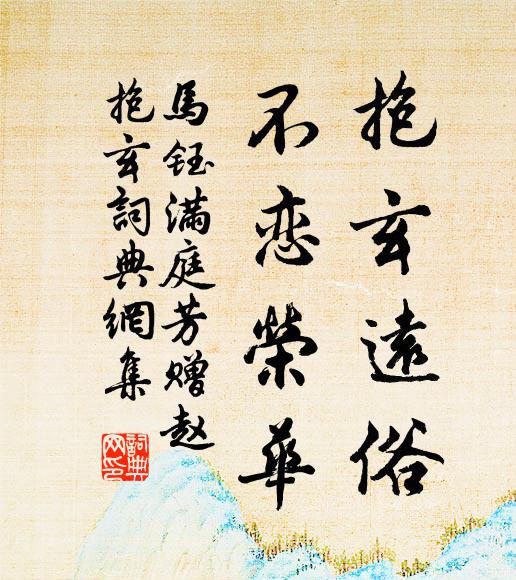 抱玄遠俗
不恋榮華
馬鈺滿庭芳赠赵
抱玄詞典網集
詞典
网印